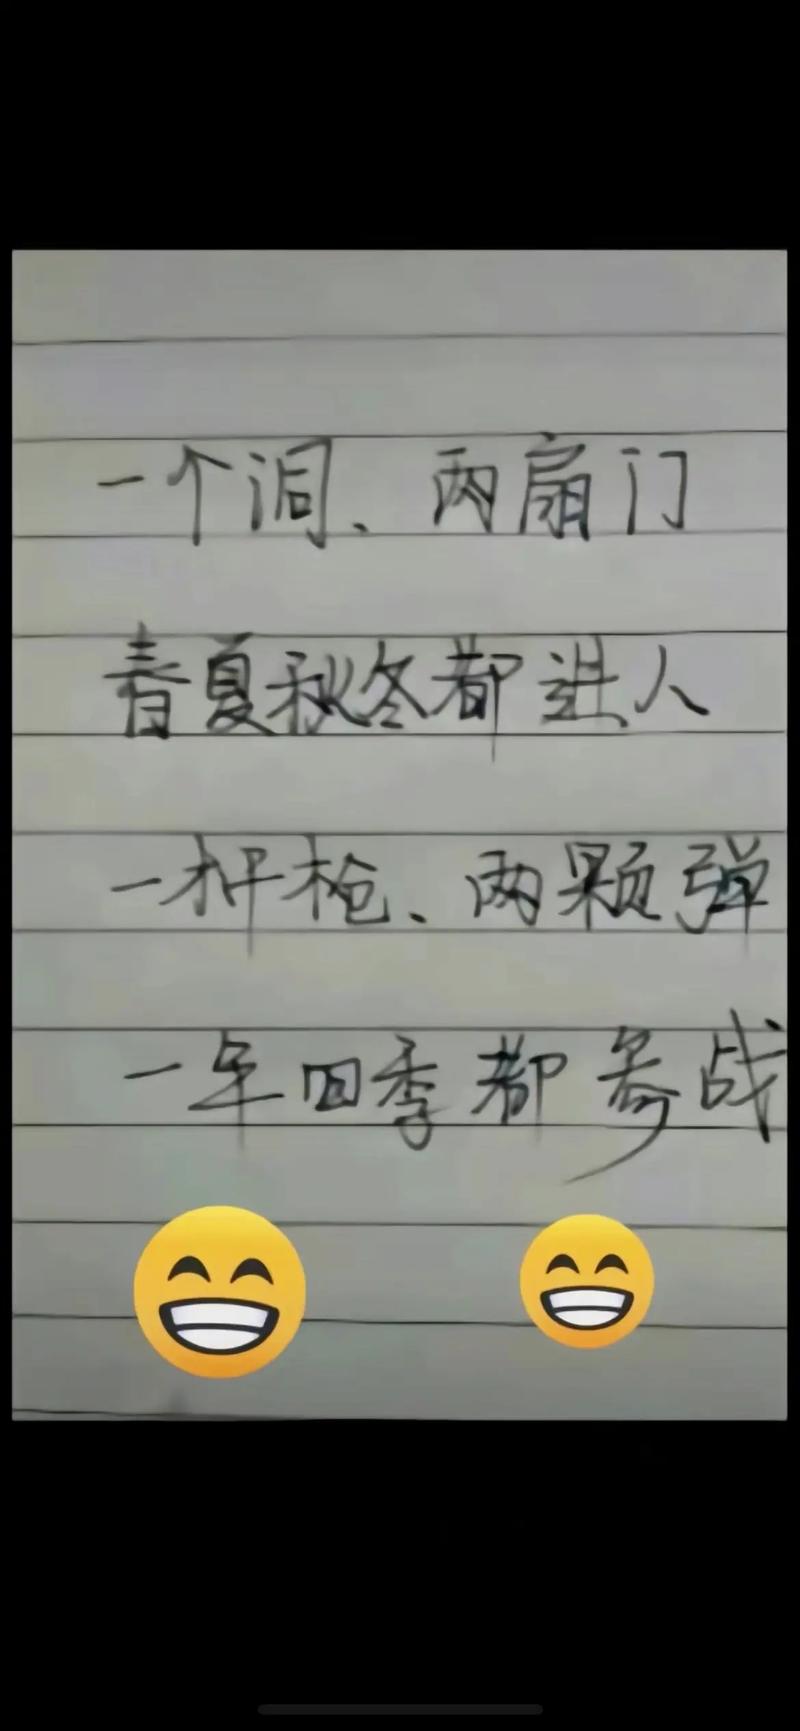 一个洞、两扇门
春夏秋冬都进人
一杆枪、两颗弹
一年四季都参战